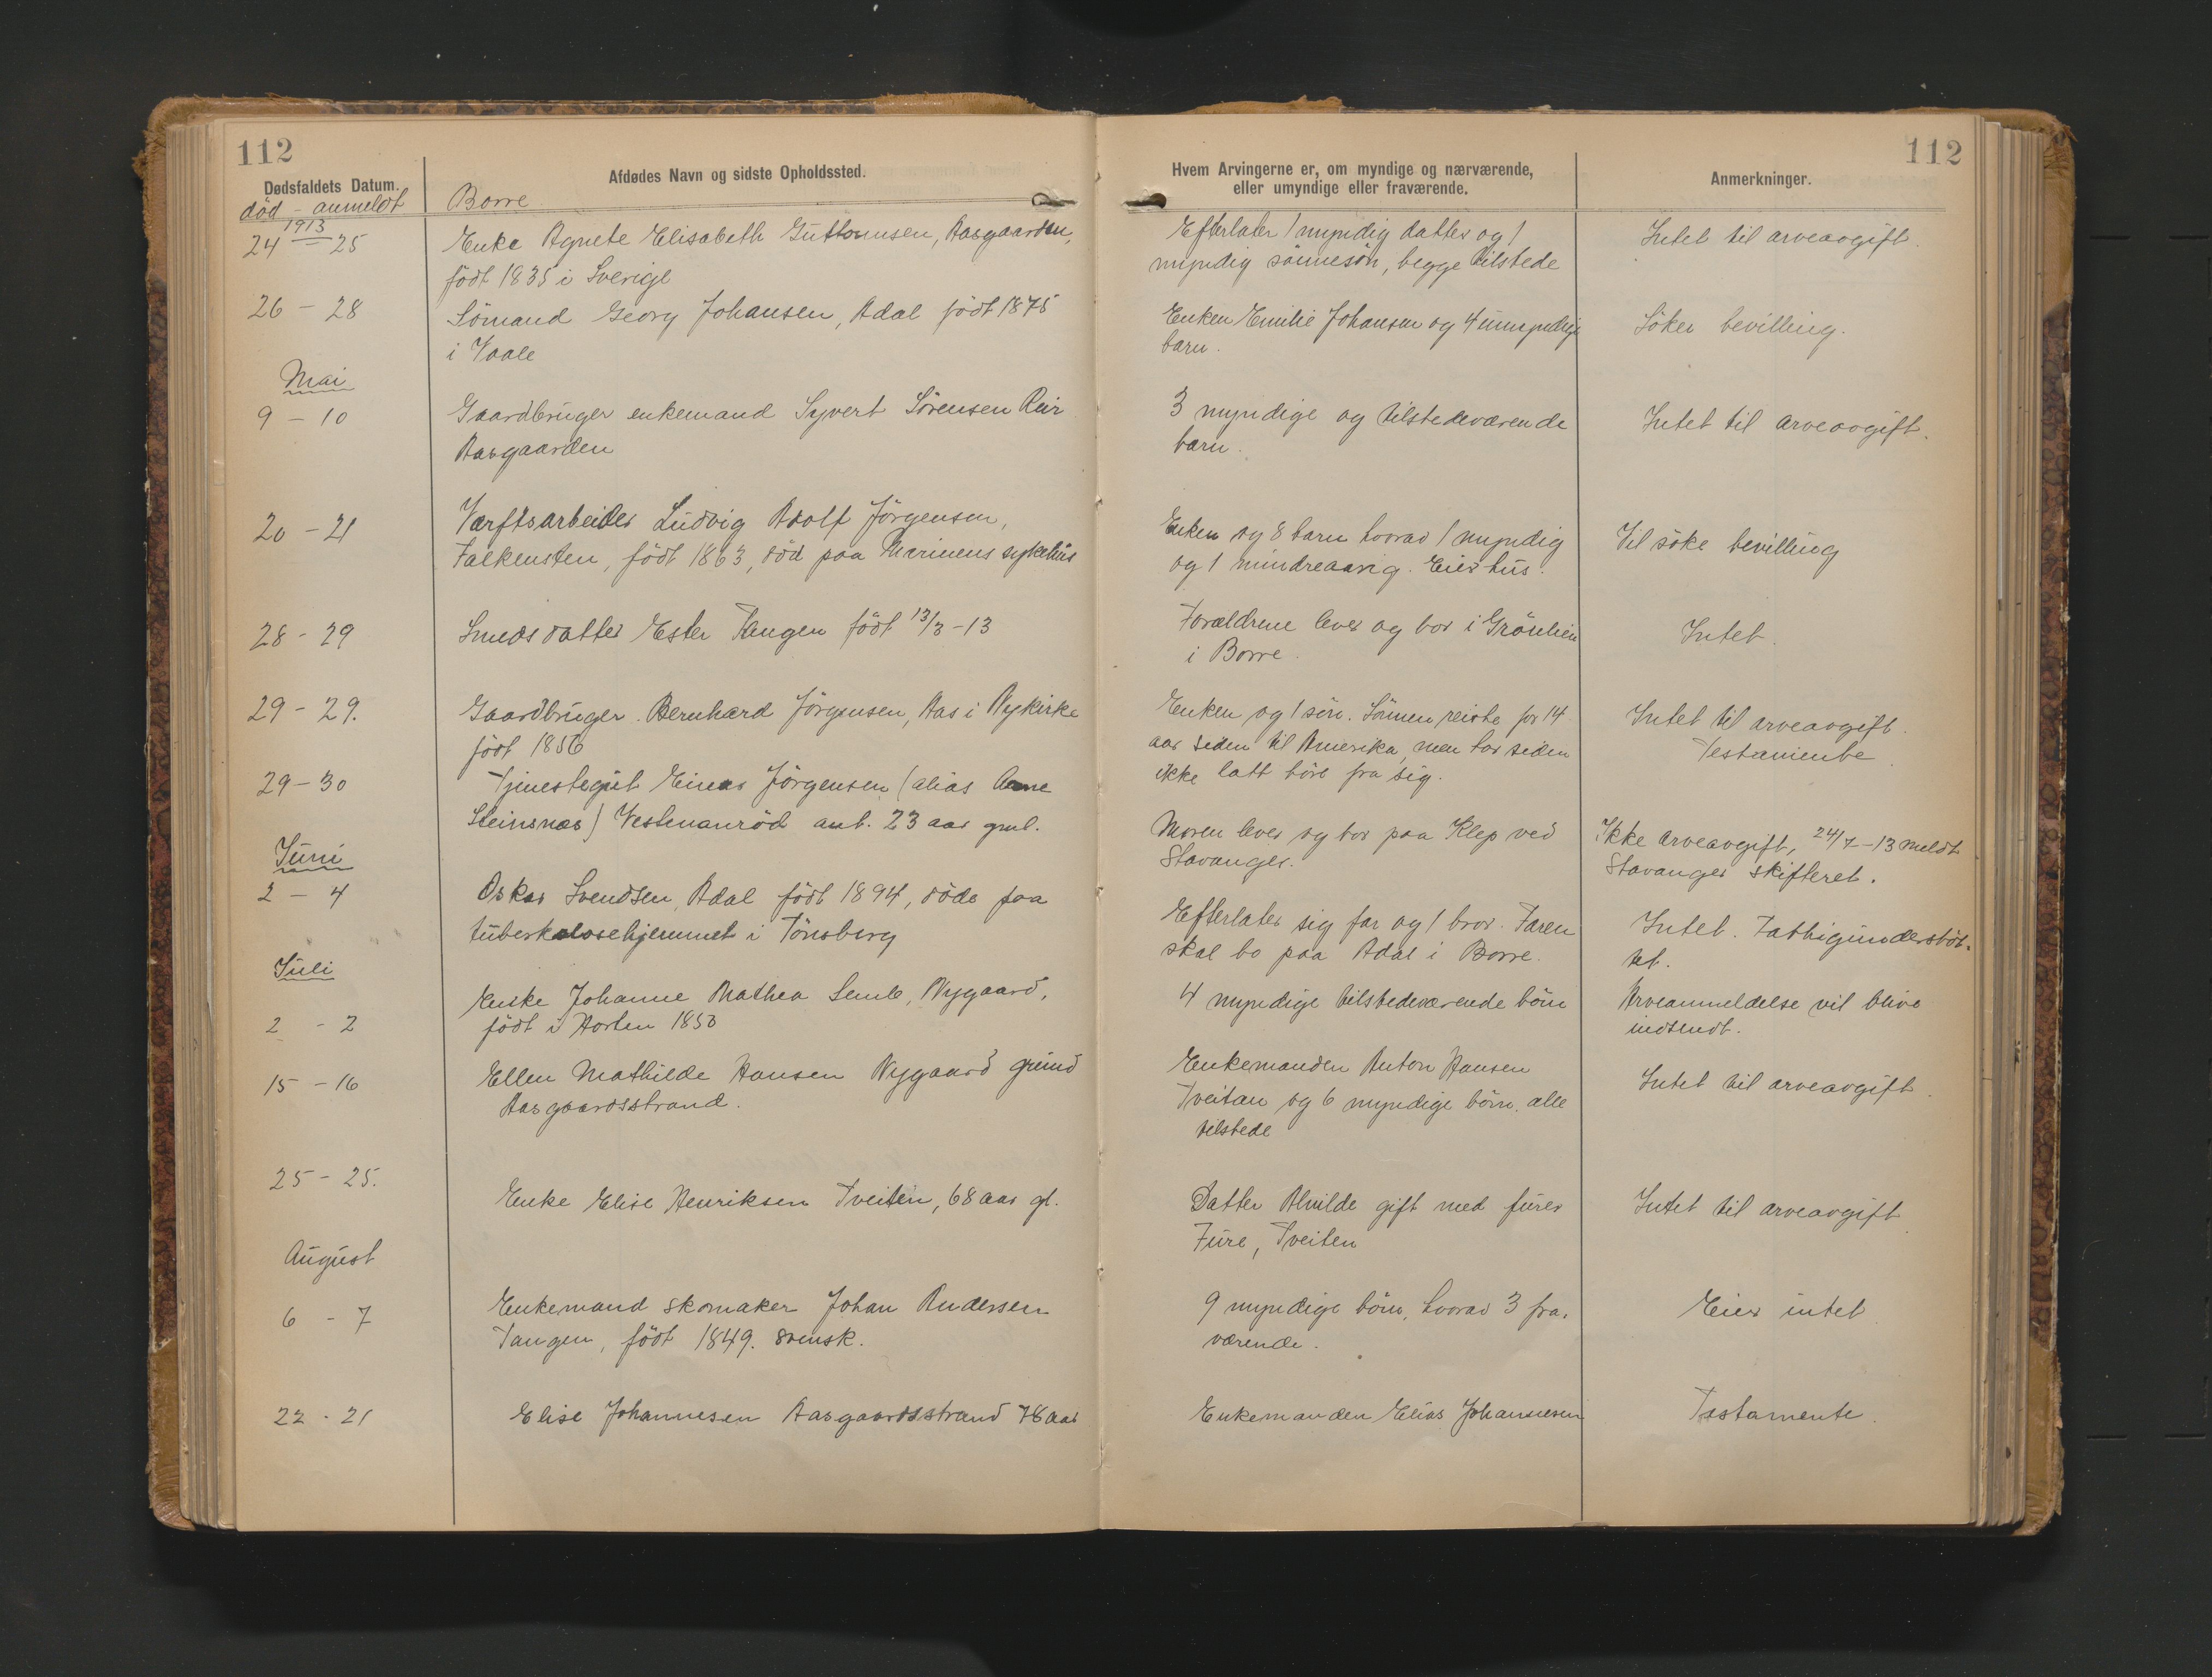 112
Dødsfaldets Datum.
Afdødes Navn og sidste Opholdssted.
död - anmeldt
Borre
1913
24 — 25
Enke Agnete Elisabeth Guttormsen, Aasgaarden,
födt 1835 i Sverige
26 - 28
Sömand Georg Johansen, Adal födt 1875
i Vaale
Mai
9 - 10
Gaardbruger enkemand Syvert Sörensen Rør
Aasgaarden
20 - 21
Værftsarbeider Ludvig Adolf Jörgensen,
Falkensten, födt 1863, död paa Marinens sykehus
28 - 29
Smedsdatter Ester Tangen födt 13/3-13
29 - 29.
Gaardbruger Bernhard Jörgensen, Aas i Nykirke
födt 1856
29-30
Tjenestegut Einar Jörgensen (alias Arne
Steinsnæs) Vestenanröd ant. 23 aar gml.
Juni
2 - 4
Oskar Svendsen, Adal födt 1894, döde paa
tuberkulosehjemmet i Tönsberg
Juli
2 - 2
Enke Johanne Mathea Semb, Nygaard,
födt i Horten 1850
15 - 16
Ellen Mathilde Hansen Nygaard grund
Aasgaardsstrand.
25 - 25.
Enke Elise Henriksen Tveiten, 68 aar gl.
August
6 - 7
Enkemand skomaker Johan Andersen
Tangen, födt 1849. svensk.
22 - 21
Elise Johannesen Aasgaardsstrand 78 aar
112
Hvem Arvingerne er, om myndige og nærværende,
eller umyndige eller fraværende.
Anmerkninger.
Efterlater 1 myndig datter og 1
myndig sönnesön, begge tilstede
Intet til arveavgift.
Enken Emilie Johansen og 4 umyndige
barn.
Söker bevilling.
3 myndige og tilstedeværende
barn.
Intet til arveavgift.
Enken og 8 barn hvorav 1 myndig
og 1 mindreaarig. Eier hus.
Vil söke bevilling
Forældrene lever og bor i Grönlien
i Borre.
Intet.
Enken og 1 sön. Sönnen reiste for 14
aar siden til Amerika, men har siden
ikke latt höre fra sig.
Intet til arveavgift.
Testamente
Moren lever og bor paa Klep ved
Stavanger.
Ikke arveavgift, 24/7-13 meldt
Stavanger skifteret.
Efterlater sig far og 1 bror. Faren
skal bo paa Adal i Borre.
Intet. Fattigunderstöt-
tet.
4 myndige tilstedeværende börn
Arveanmeldelse vil blive
indsendt.
Enkemanden Anton Hansen
Tveitan og 6 myndige börn, alle
tilstede
Intet til arveavgift.
Datter Alvilde gift med furer
Fure, Tveiten
Intet til arveavgift.
9 myndige börn, hvorav 3 fra-
værende.
Eier intet.
Enkemanden Elias Johannesen
Testamente.